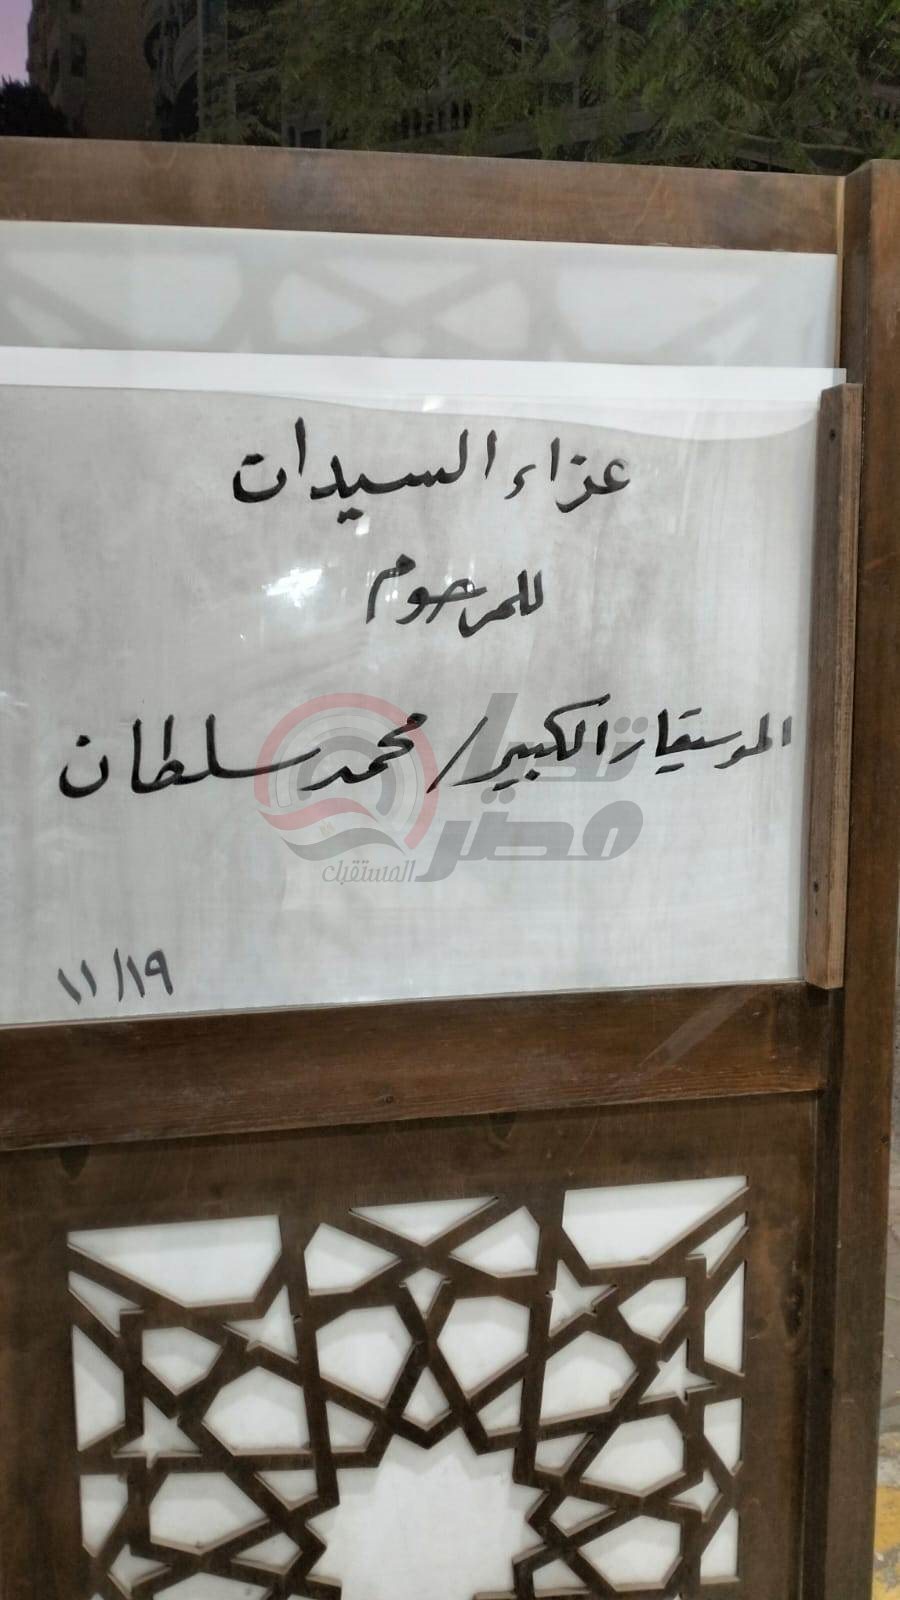 عزاء السيدات
للمرحوم
الموسيقار الكبير/ محمد سلطان
تحيا
مصر
المستقبل
١١/١٩